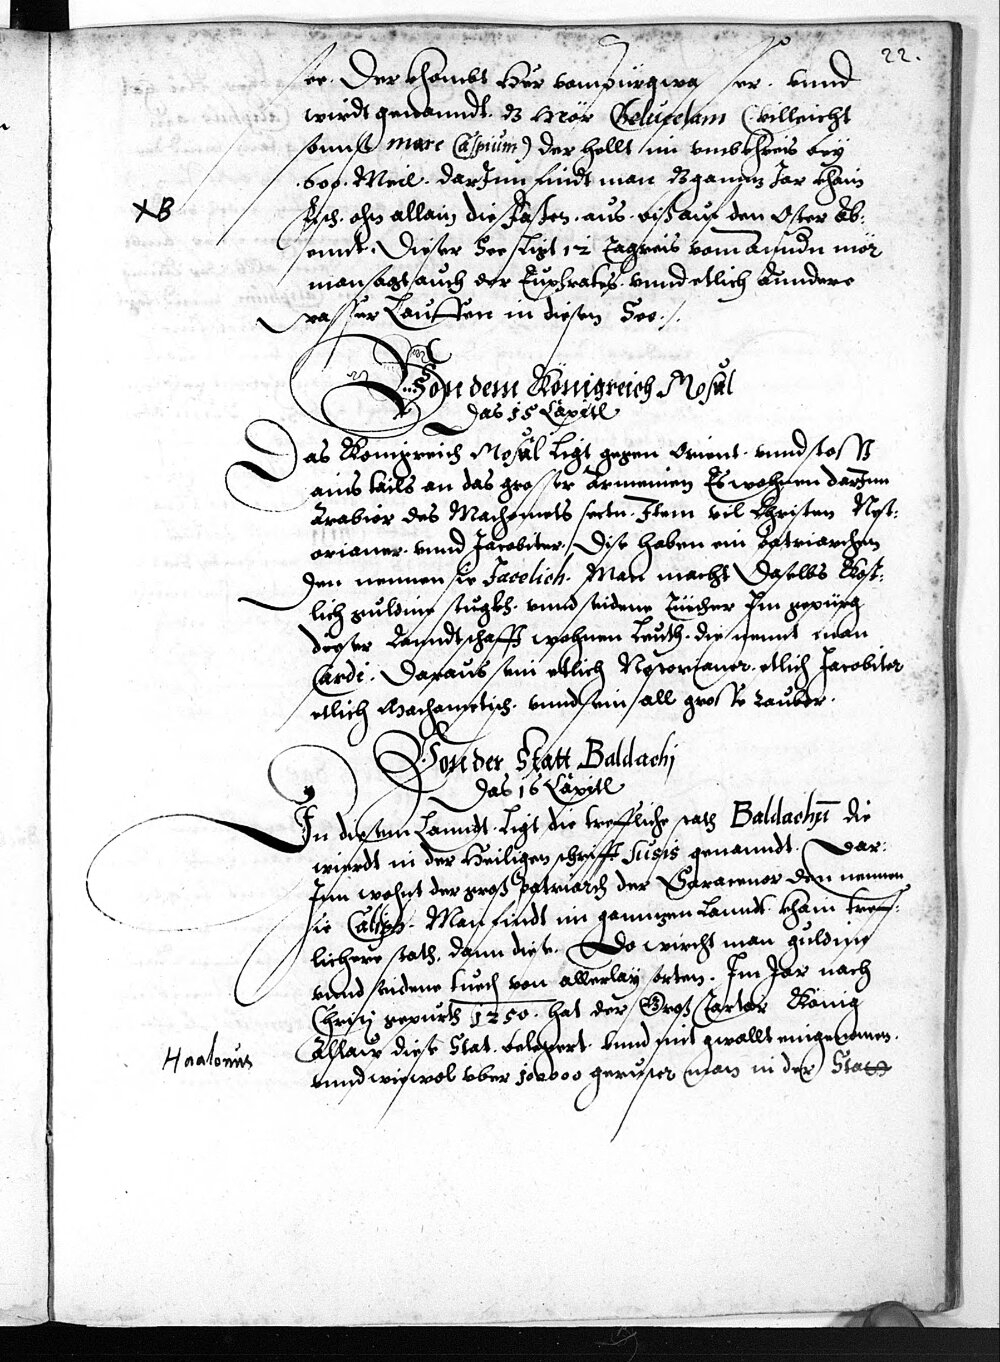 22.
see. Der khombt Her vom pürgwasser. vnnd
wirdt genanndt. ds Mör Geluchelam (villeicht
sonnst mare Caspium) der hellt im vmbkhreis bey
600. Meil. darJnn findt man ds ganntz Jar khain
XB
Fisch. ohn allain die Fasten aus. bis auf den Oster Ab:
ennt. Dieser See Ligt 12 Tagreis vom anndn mör
man sagt auch der Euphrates. vnnd etlich anndere
wasser Lauffen in diesen See./.
Von dem Königreich Mosul
Das 15 Capitl
Das Königreich Mosul Ligt gegen Orient. vnnd stosst
ains tails an das grosser Armenien Es wohnen darJnn
Arabier des Machomets sectn. Jtem vil Christen Nest:
orianer. vnnd Jacobiter. Dise haben ein Patriarchen
den nennen sie Jacelich. Man macht daselbs Köst:
lich guldine stugkh. vnnd seidene Tücher Jm gepürg
dieser Lanndtschafft wohnen Leuth. die nennt man
Cardi. Daraus sein etlich Nestorianer. etlich Jacobiter
etlich Machometisch. vnnd sein all grosse Rauber.
Von der Statt Baldachj
Das 16 Capitl
Jn diesem Lanndt. Ligt die treffliche stath Baldachū die
wierdt in der Heiligen schrifft Susis genanndt. Dar:
Jnn wohnt der gros Patriarch der Saracener den nennen
sie Caliph. Man findt im ganntzen Lanndt. khain treff:
lichere stath. dann diese. Do wircht man guldine
vnnd seidene tuech von allerlay sorten. Jm Jar nach
Christj gepurth 1250. hat der Gros Tartar König
Haalonus
Allaw diese Stat. belegert. vnnd mit gwallt eingenomen.
vnnd wiewol vber 100000 geruster man in der Statt